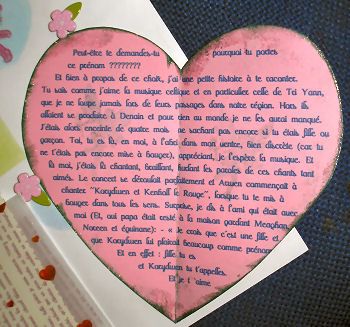 Peut-être te demandes-tu pourquoi tu portes
ce prénom ????????
Et bien à propos de ce choix, j'ai une petite histoire à te raconter.
Tu sais comme j'aime la musique celtique et en particulier celle de Tri Yann,
que je ne loupe jamais lors de leurs passages dans notre région. Hors ils
allaient se produire à Denain et pour rien au monde je ne les aurai manqué.
J'étais alors enceinte de quatre mois ne sachant pas encore si tu étais fille ou
garçon. Toi, tu es là, en moi, à l'abri dans mon ventre, bien discrète (car tu
ne t'étais pas encore mise à bouger), appréciant, je l'espère la musique. Et
là moi, j'étais là chantant, braillant, hurlant les paroles de ces chants tant
aimés. Le concert se déroulait parfaitement et
commençait à
chanter "Korydwen et
le Rouge", lorsque tu te mis à
bouger dans tous les sens. Surprise, je dis à l'ami qui était avec
moi (Et, oui papa était resté à la maison gardant Meaghan,
et
): - « Je crois que c'est une fille et
que Korydwen lui plairait beaucoup comme prénom
Et en effet : fille tu es
et Korydwen tu t'appelles.
Et je t'aime